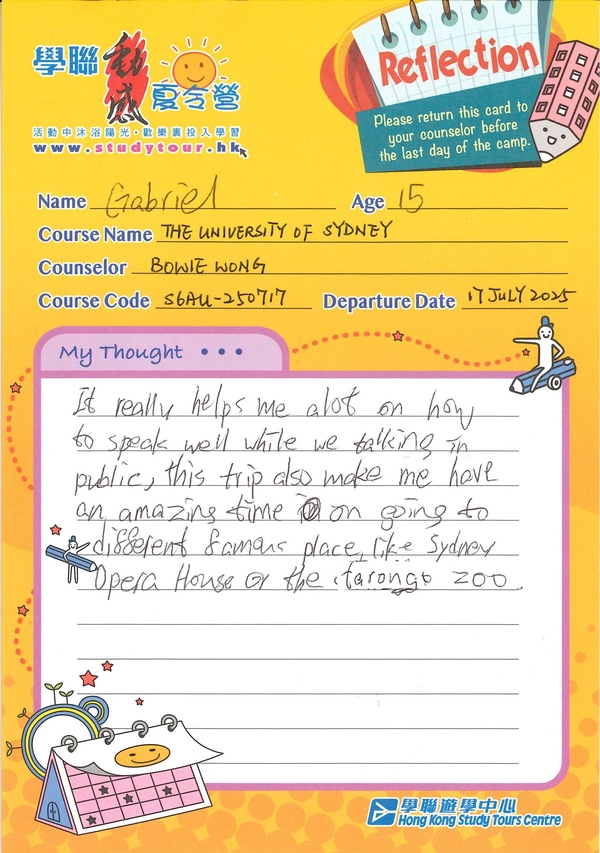 學聯 動感 夏令營
活動中沐浴陽光•歡樂裏投入學習
www.studytour.hk
Reflection
Please return this card to
your counselor before
the last day of the camp.
Name Gabriel Age 15
Course Name THE UNIVERSITY OF SYDNEY
Counselor BOWIE WONG
Course Code S6AU-250717 Departure Date 17 JULY 2025
My Thought •••
It really helps me alot on how
to speak well while we talking in
public, this trip also make me have
an amazing time on going to
different famous place, like Sydney
Opera House or the tarongo zoo.
學聯遊學中心
Hong Kong Study Tours Centre